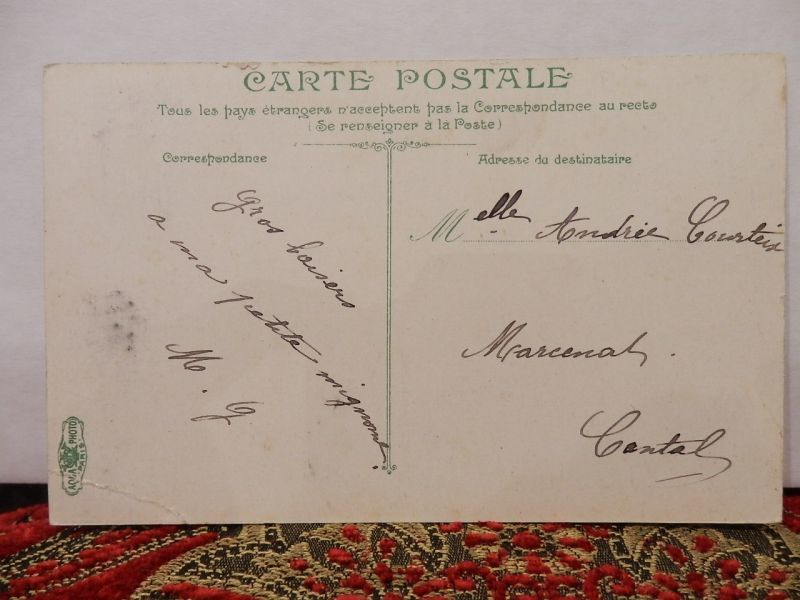 CARTE POSTALE
Tous les pays étrangers n'acceptent pas la Correspondance au recto
(Se renseigner à la Poste)
Correspondance
Gros baisers
a ma petite mignonne.
M. G
Adresse du destinataire
Melle Andrée Courteix
Marcenat.
Cantal
AQUA PHOTO
PARIS